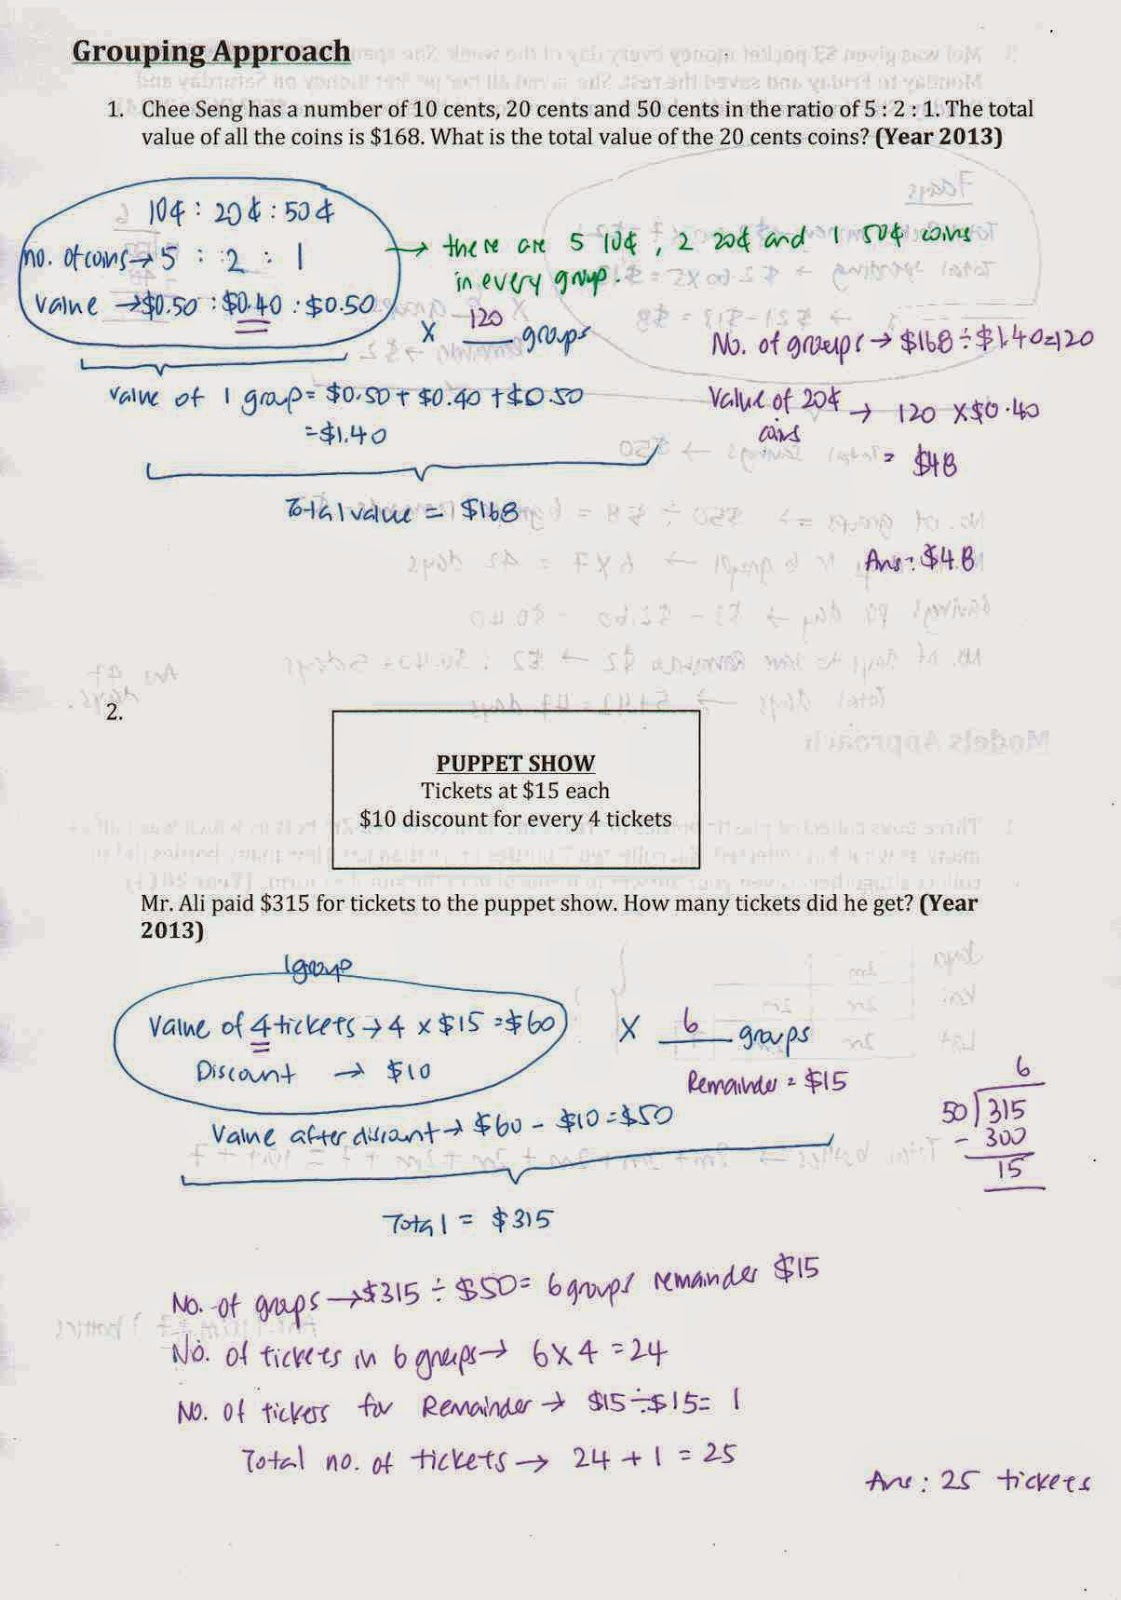 Grouping Approach
1. Chee Seng has a number of 10 cents, 20 cents and 50 cents in the ratio of 5 : 2 : 1. The total
value of all the coins is $168. What is the total value of the 20 cents coins? (Year 2013)
10¢ : 20¢ : 50¢
no. of coins → 5 : 2 : 1
value → $0.50 : $0.40 : $0.50
→ there are 5 10¢, 2 20¢ and 1 50¢ coins
in every group.
x 120 groups
value of 1 group = $0.50 + $0.40 + $0.50
= $1.40
Total value = $168
No. of groups → $168 ÷ $1.40 = 120
Value of 20¢ coins → 120 x $0.40
= $48
Ans: $48
2.
PUPPET SHOW
Tickets at $15 each
$10 discount for every 4 tickets
Mr. Ali paid $315 for tickets to the puppet show. How many tickets did he get? (Year
2013)
1 group
Value of 4 tickets → 4 x $15 = $60
Discount → $10
x 6 groups
Remainder = $15
Value after discount → $60 - $10 = $50
Total = $315
6
50 315
- 300
15
No. of groups → $315 ÷ $50 = 6 groups remainder $15
No. of tickets in 6 groups → 6 x 4 = 24
No. of tickets for Remainder → $15 ÷ $15 = 1
Total no. of tickets → 24 + 1 = 25
Ans: 25 tickets